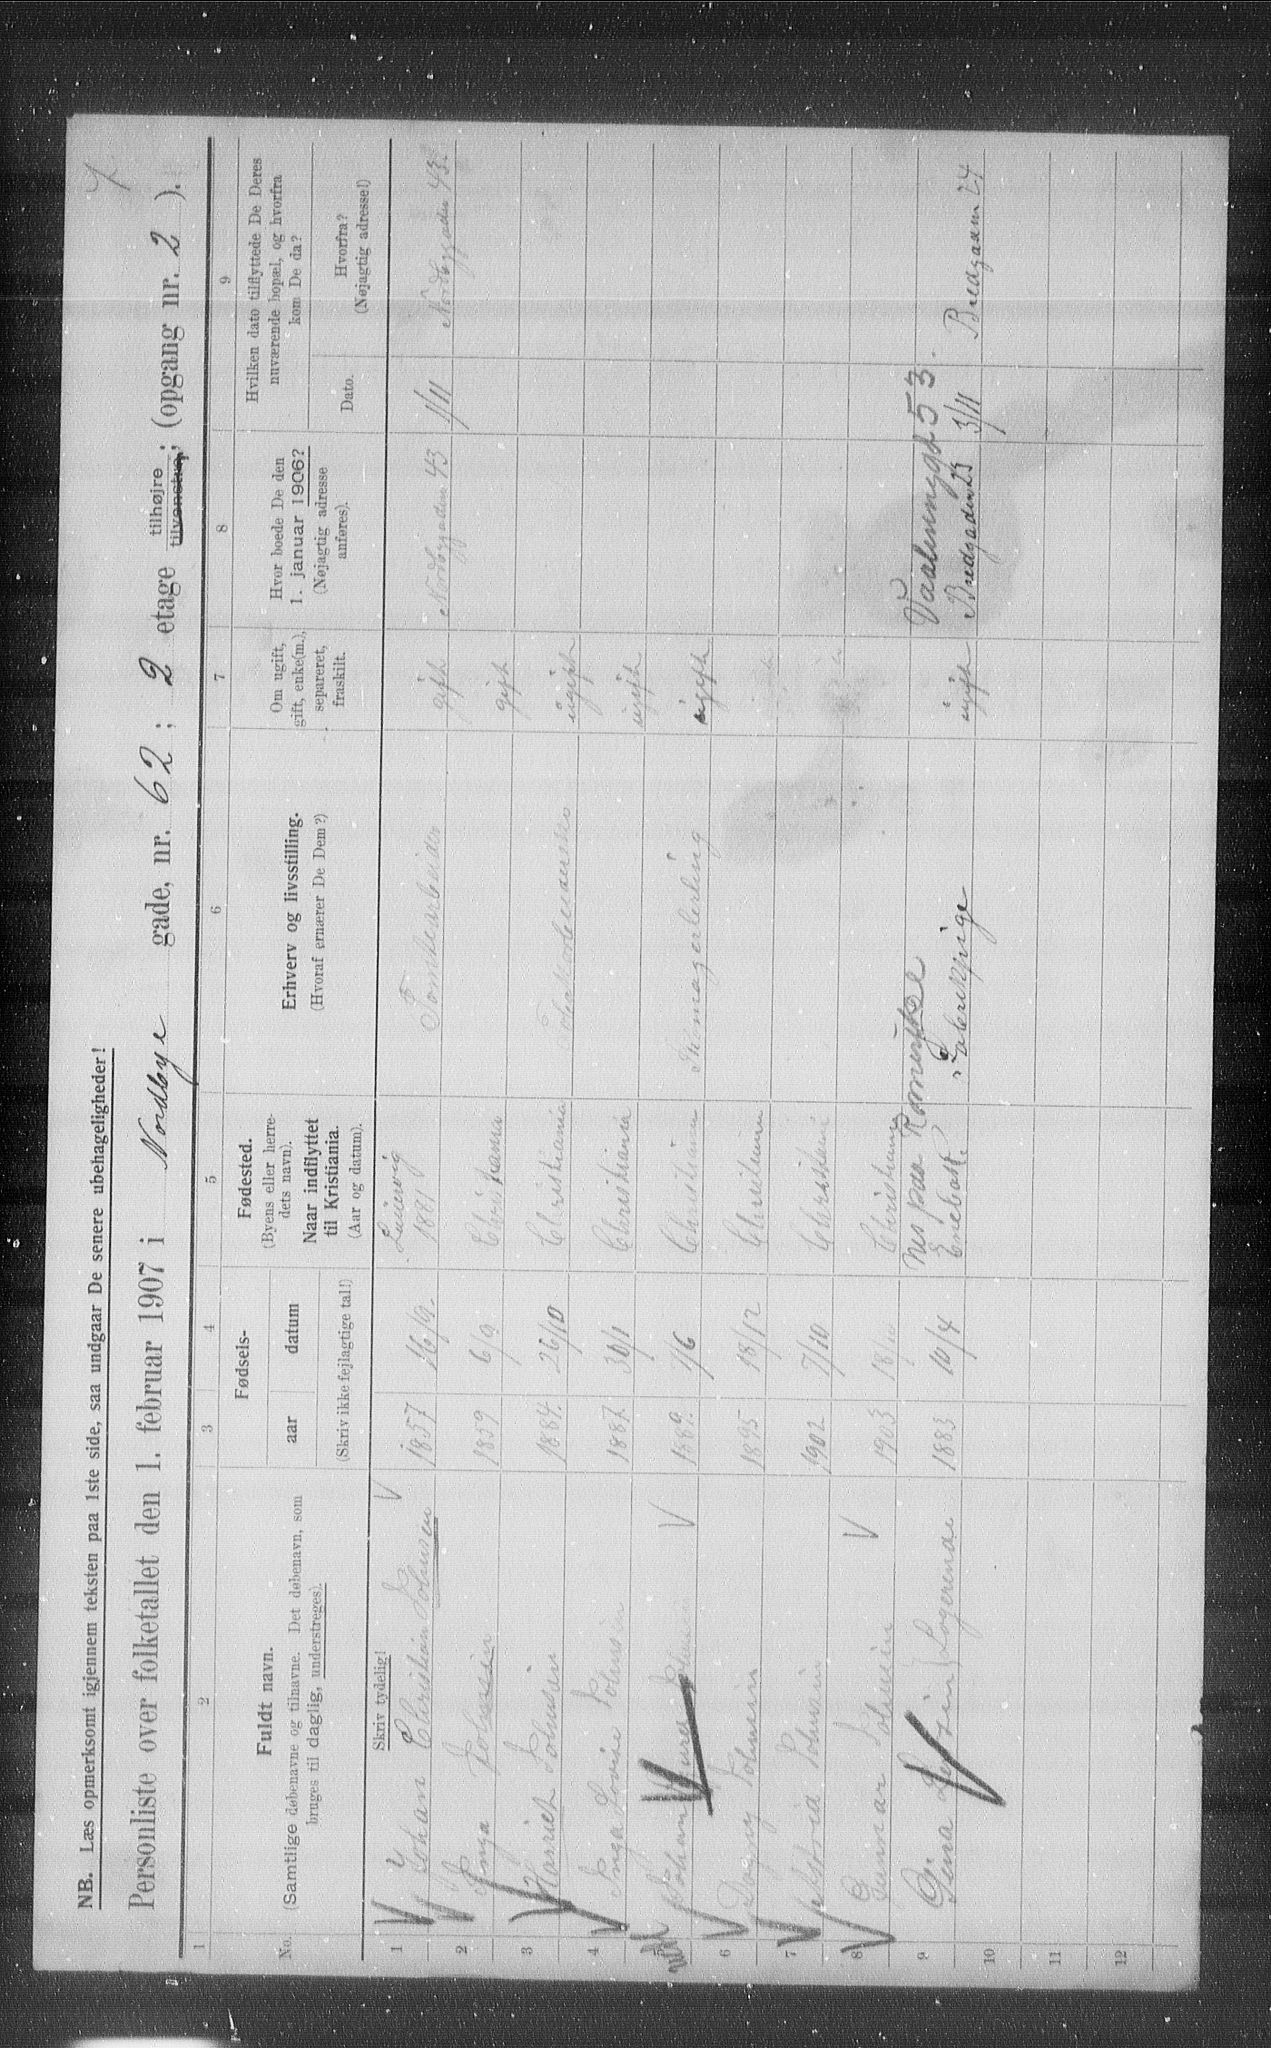 NB. Læs opmerksomt igjennem teksten paa 1ste side, saa undgaar De senere ubehageligheder!
Personliste over folketallet den 1. februar 1907 i Nordbye gade, nr. 62; 2 etage tilhøjre tilvenstre; (opgang nr. 2).
1 2 3 4 5 6 7 8 9
No.
Fuldt navn.
(Samtlige døbenavne og tilnavne. Det døbenavn, som
bruges til daglig, understreges).
Fødsels-
aar datum
(Skriv ikke fejlagtige tal!)
Fødested.
(Byens eller herre-
dets navn).
Naar indflyttet
til Kristiania.
(Aar og datum).
Erhverv og livsstilling.
(Hvoraf ernærer De Dem?)
Om ugift,
gift, enke(m.),
separeret,
fraskilt.
Hvor boede De den
1. januar 1906?
(Nøjagtig adresse
anføres).
Hvilken dato tilflyttede De Deres
nuværende bopæl, og hvorfra
kom De da?
Dato.
Hvorfra?
(Nøjagtig adresse!)
Skriv tydelig!
1 Johan Christian Johnsen 1857 16/9 1881 Tomtearbeider gift Nordbygaden 43 1/11 Nordbygaden 43.
2 Inga Johnsen 1859 6/9 Christiania gift
3 Harriet Johnsen 1884 26/10 Christiania ugift
4 Inga Lovise Johnsen 1887 30/1 Christiania ugift
5 Johan Johnsen 1889 1/6 Christiania ugift
6 Dagny Johnsen 1895 18/12 Christiania
7 Astrid Johnsen 1902 7/10 Christiania
8 Gunnar Johnsen 1903 Christiania
Nes paa Romerike Vaalerenggt 53.
9 Gina Logerende 1883 10/4 Enebak? Fabrikpige ugift Bredgaden 23 3/11 Bredgaden 24
10
11
12